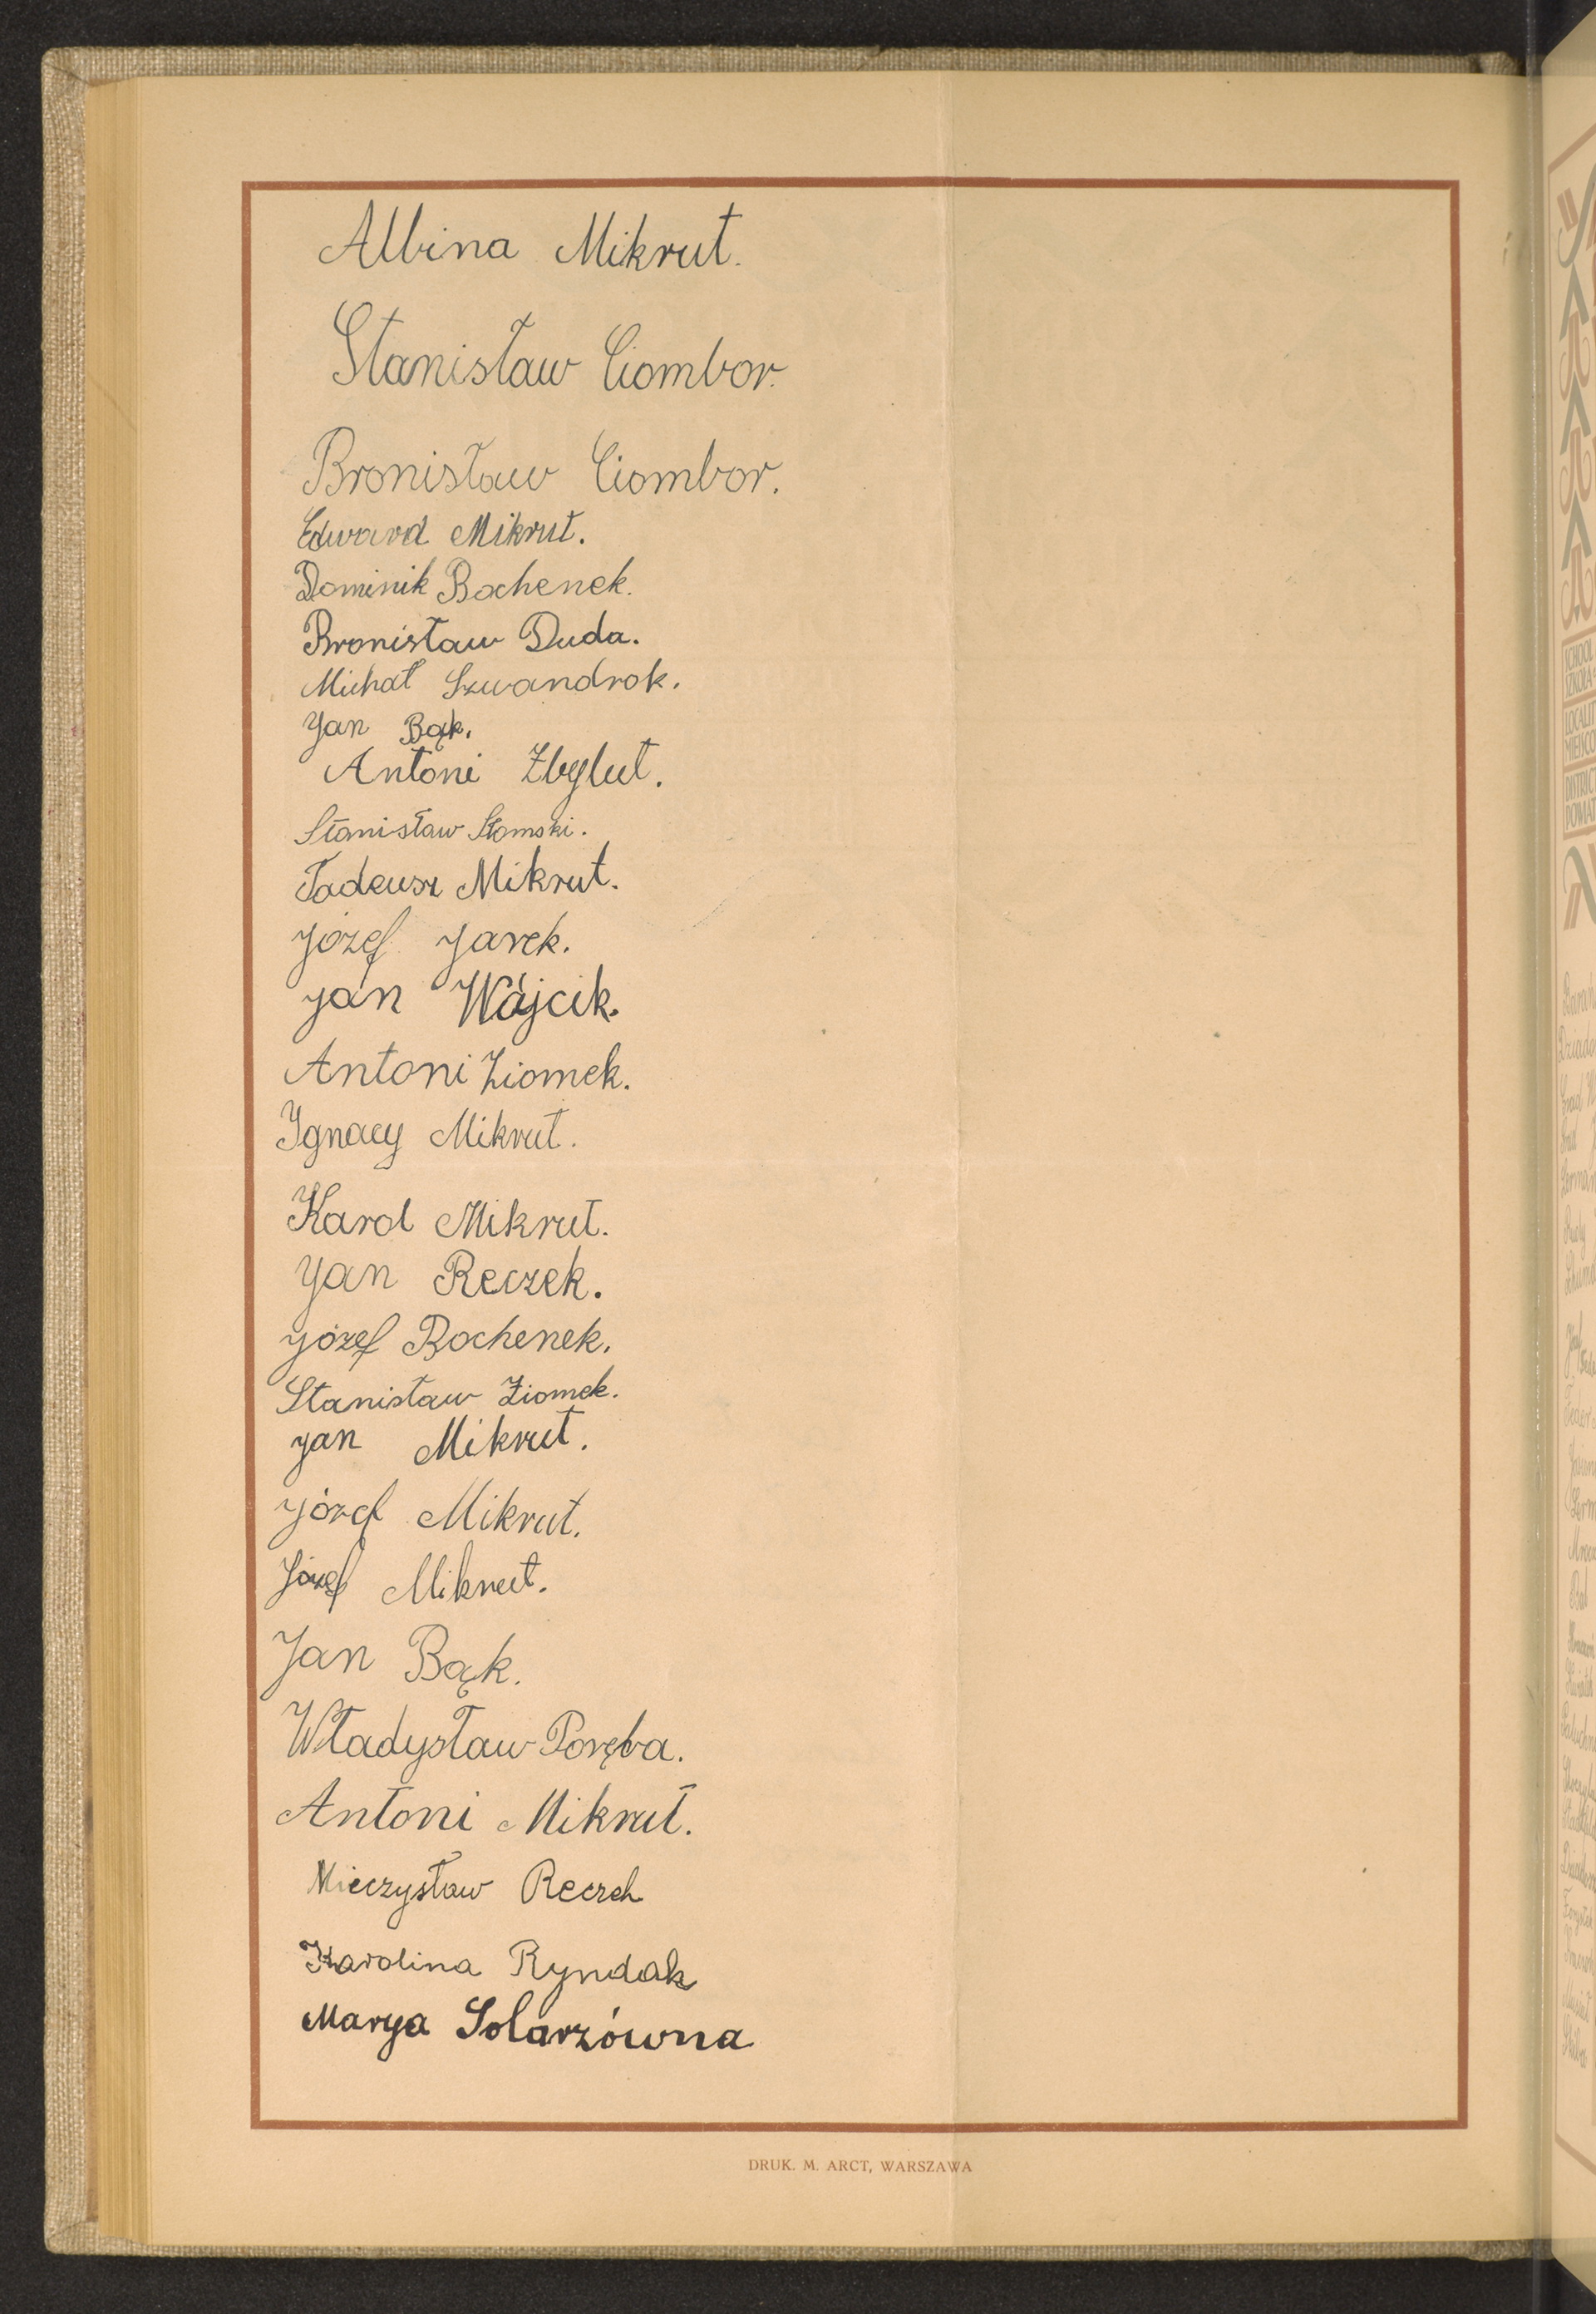 Albina Mikrut.
Stanisław Ciombor.
Bronisław Ciombor.
Edward Mikrut.
Dominik Bochenek.
Bronisław Duda.
Michał Szwandrok.
Jan Bąk.
Antoni Zbylut.
Stanisław Słomski.
Tadeusz Mikrut.
Józef Jarek.
Jan Wójcik.
Antoni Ziomek.
Ignacy Mikrut.
Karol Mikrut.
Jan Reczek.
Józef Bochenek.
Stanisław Ziomek.
Jan Mikrut.
Józef Mikrut.
Józef Mikrut.
Jan Bąk.
Władysław Poręba.
Antoni Mikrut.
Mieczysław Reczek
Karolina Ryndak
Marya Solarzówna
DRUK. M. ARCT, WARSZAWA